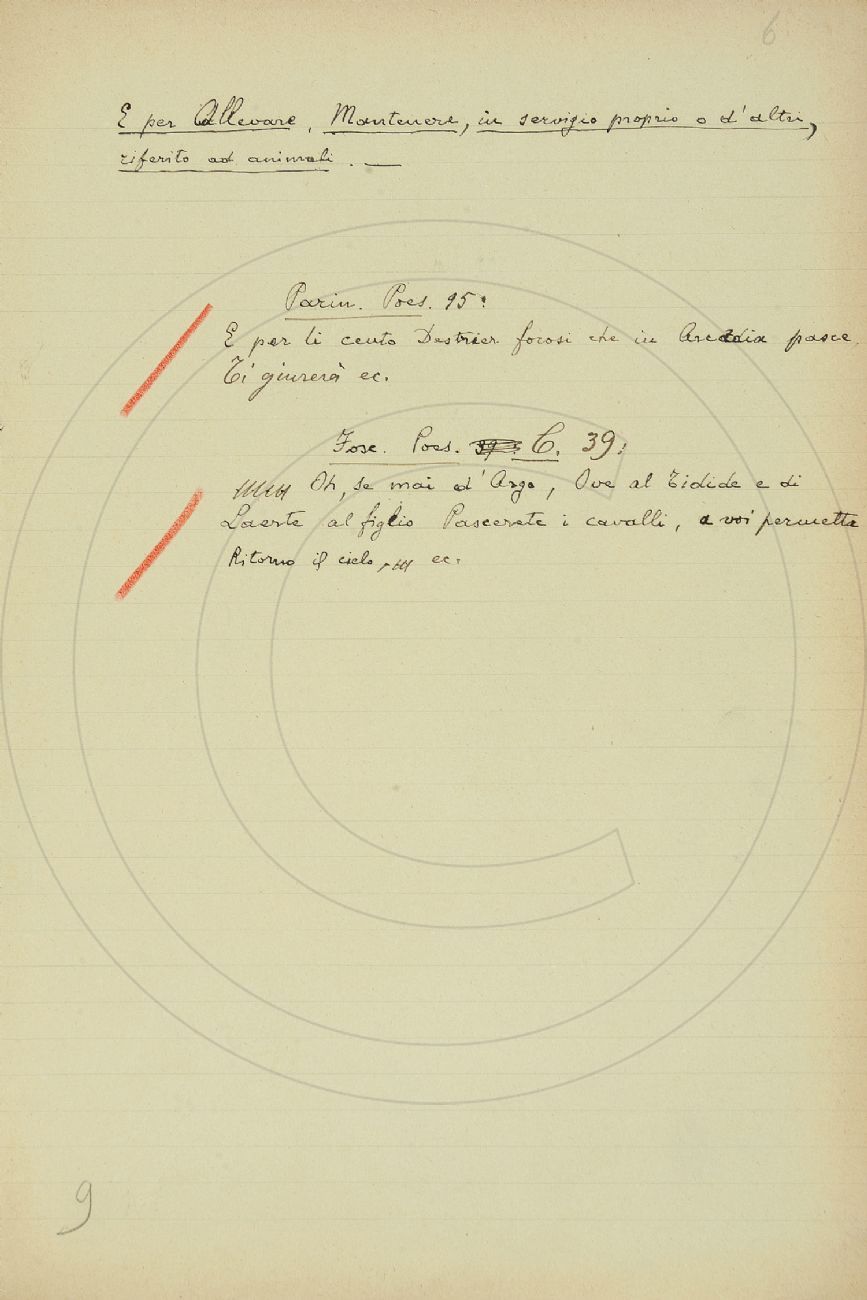 6
E per Allevare, Mantenere, in servigio proprio o d'altri,
riferito ad animali. —
Parin. Poes. 95:
E per li cento Destrier focosi che in Arcadia pasce,
Ti giurerà ec.
Fosc. Poes. C. 39:
Oh, se mai d'Argo, Ove al Tidide e di
Laerte al figlio Pascerete i cavalli, a voi permetta
Ritorno il cielo, ec.
9